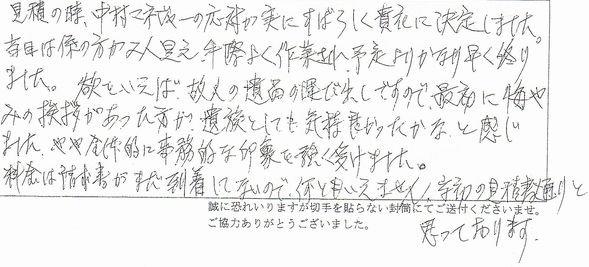 見積の時、中村マネジャーの応対が実にすばらしく貴社に決定しました。
当日は係の方が3人見え、手際よく作業され、予定よりかなり早く終り
ました。欲をいえば、故人の遺品の運び出しですので、最初に悔や
みの挨拶があった方が、遺族としても気持良かったかな、と感じ
ました。やや全体的に事務的な印象を強く受けました。
料金は請求書がまだ到着してないので、何とも言えません(当初の見積書通りと
思っております。
誠に恐れいりますが切手を貼らない封筒にてご送付くださいませ。
ご協力ありがとうございました。